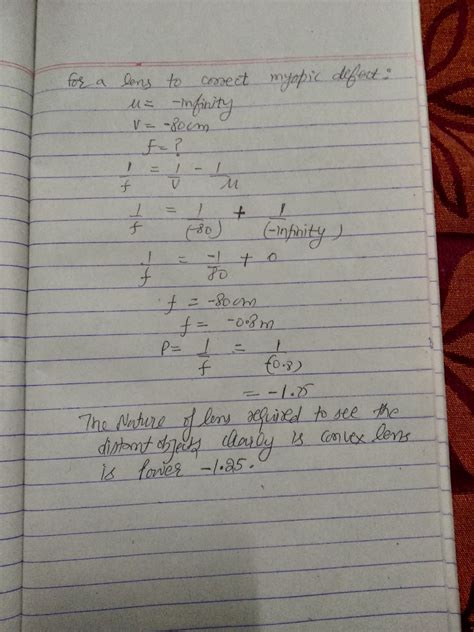 for a lens to correct myopic defect:
u = -infinity
v = -80cm
f = ?
1/f = 1/v - 1/u
1/f = 1/(-80) + 1/(-infinity)
1/f = -1/80 + 0
f = -80cm
f = -0.8m
P = 1/f = 1/(-0.8)
= -1.25
The Nature of lens required to see the
distant objects clearly is convex lens
is Power -1.25.